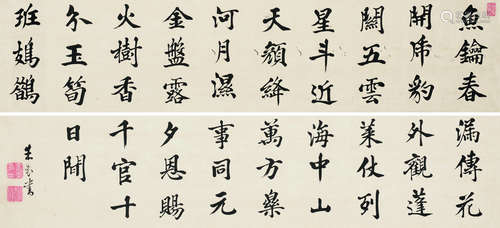 魚鑰春
開虎豹
關五雲
星斗近
天顏絳
河月濕
金盤露
火樹香
分玉筍
班鳷鵲
漏傳花
外觀蓬
萊仗列
海中山
萬方樂
事同元
夕恩賜
千官十
日閒
書